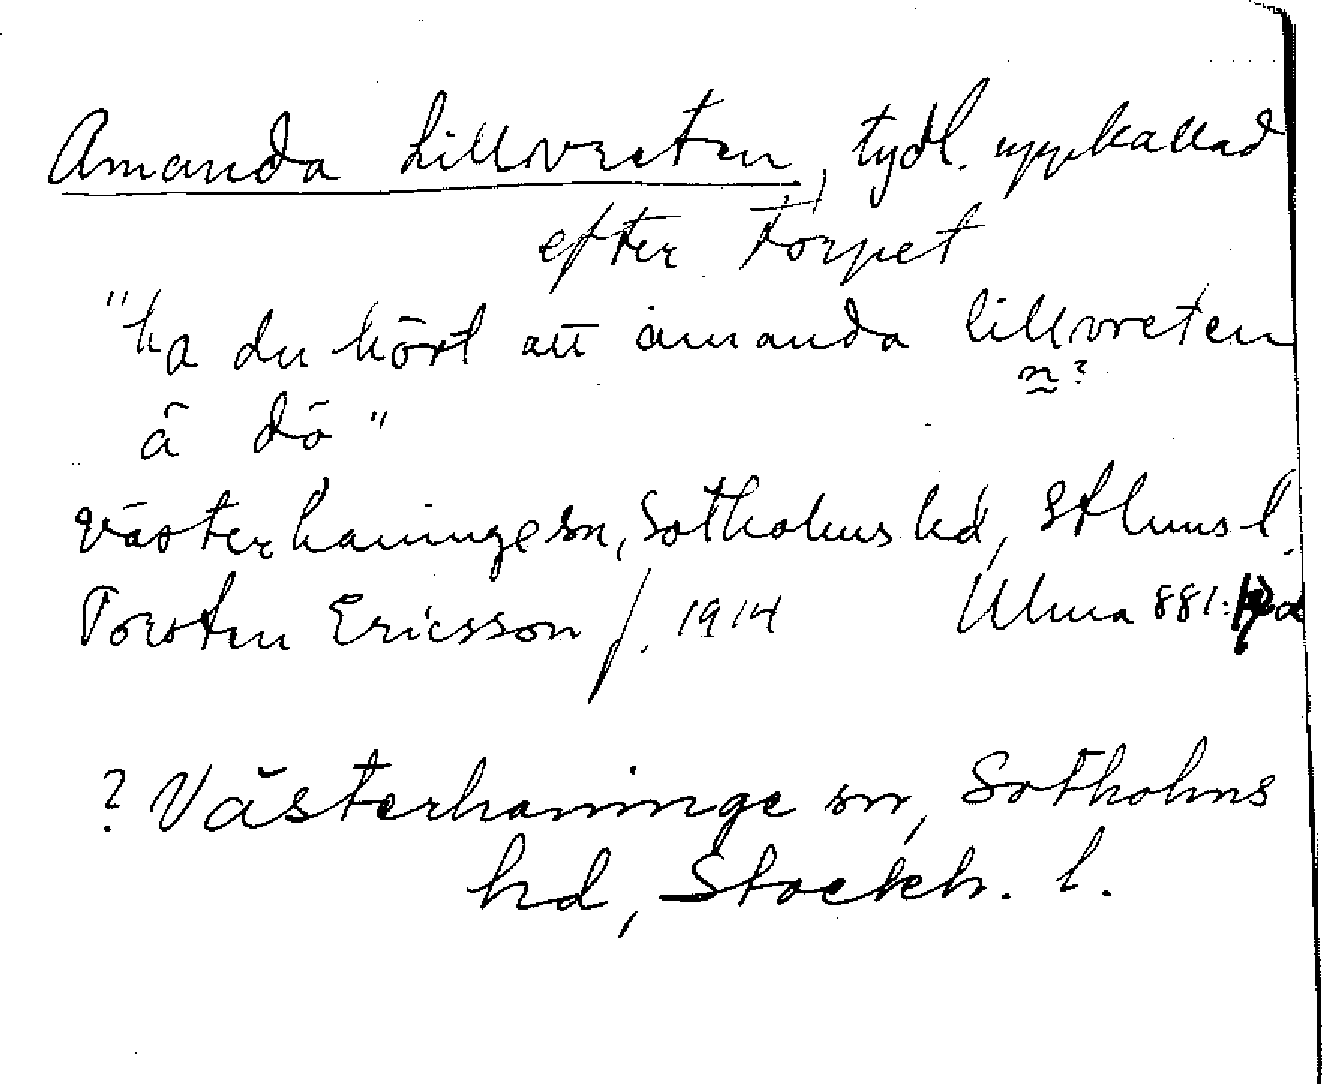 Amanda Lillvreten, tydl. uppkallad
efter torpet
"ha du hört att amanda lillvreten
n?
ä dö"
Västerhaninge sn, Sotholms hd, Sthms l.
Torsten Ericsson f. 1914 Ulma 881:
? Västerhaninge sn, Sotholms
hd, Stockh. l.